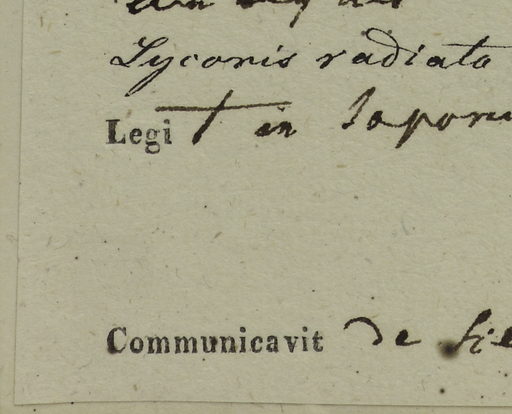 Lycoris radiata
Legit in Japoni
Communicavit de Sie